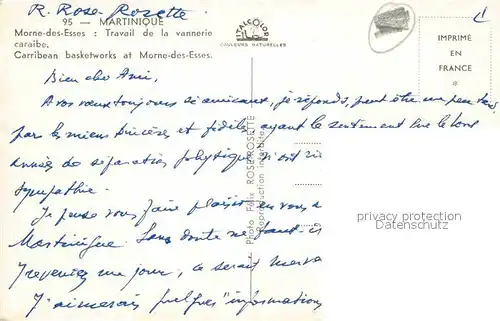 R. Rose-Rosette
95 — MARTINIQUE
Morne-des-Esses : Travail de la vannerie
caraïbe.
Carribean basketworks at Morne-des-Esses.
ITALCOLOR
COULEURS NATURELLES
IMPRIMÉ
EN
FRANCE
*
Bien cher Ami,
A vos vœux toujours si amicaux, je réponds, peut être un peu tard,
par les miens sincères et fidèles ayant le sentiment que le long
années de séparation physique n'ont ri
sympathie.
Je pense vous faire plaisir en vous a
Martinique. Sans doute ne faut-il
reveniez un jour, ce serait merve
J'aimerais quelques "informations
Photo Félix ROSE-ROSETTE
Reproduction interdite
privacy protection
Datenschutz